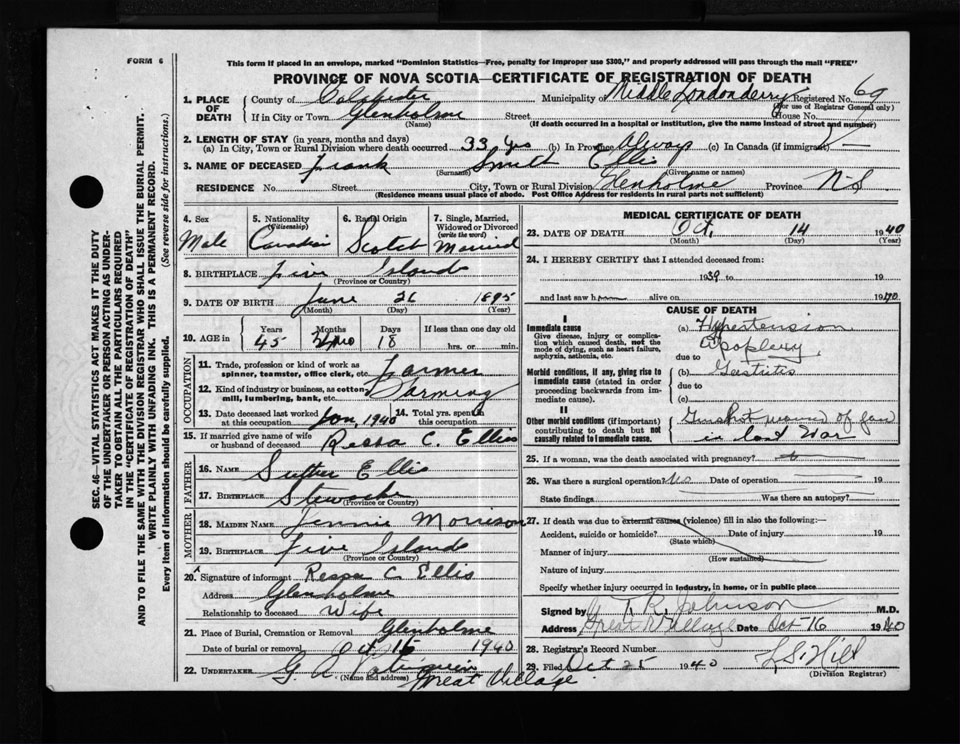 FORM 6
This form if placed in an envelope, marked "Dominion Statistics—Free, penalty for improper use $300," and properly addressed will pass through the mail "FREE"
PROVINCE OF NOVA SCOTIA—CERTIFICATE OF REGISTRATION OF DEATH
1. PLACE OF DEATH County of Colchester Municipality of Middle Londonderry Registered No. 69
(For use of Registrar General only)
If in City or Town Glenholme Street House No.
(Name) (If death occurred in a hospital or institution, give the name instead of street and number)
2. LENGTH OF STAY (in years, months and days)
(a) In City, Town or Rural Division where death occurred 33 yrs (b) In Province Always (c) In Canada (if immigrant) —
3. NAME OF DECEASED Frank Smith Ellis
(Surname) (Given name or names)
RESIDENCE No. Street City, Town or Rural Division Glenholme Province N-S
(Residence means usual place of abode. Post Office Address for residents in rural parts not sufficient)
SEC. 46—VITAL STATISTICS ACT MAKES IT THE DUTY
OF THE UNDERTAKER OR PERSON ACTING AS UNDER-
TAKER TO OBTAIN ALL THE PARTICULARS REQUIRED
IN THE "CERTIFICATE OF REGISTRATION OF DEATH"
AND TO FILE THE SAME WITH THE DIVISION REGISTRAR WHO SHALL ISSUE THE BURIAL PERMIT.
WRITE PLAINLY WITH UNFADING INK. THIS IS A PERMANENT RECORD.
Every item of information should be carefully supplied. (See reverse side for instructions.)
4. Sex 5. Nationality (Citizenship) 6. Racial Origin 7. Single, Married, Widowed or Divorced (write the word)
Male Canadian Scotch Married
8. BIRTHPLACE Five Islands
(Province or Country)
9. DATE OF BIRTH June 26 1895
(Month) (Day) (Year)
10. AGE in Years Months Days If less than one day old
45 3 mo 18 hrs. or min.
OCCUPATION
11. Trade, profession or kind of work as spinner, teamster, office clerk, etc. Farmer
12. Kind of industry or business, as cotton mill, lumbering, bank, etc. Farming
13. Date deceased last worked at this occupation Jan, 1940 14. Total yrs. spent in this occupation
15. If married give name of wife or husband of deceased Respa C. Ellis
FATHER
16. NAME Ellis
17. BIRTHPLACE
(Province or Country)
MOTHER
18. MAIDEN NAME Jennie Morrison
19. BIRTHPLACE Five Islands
(Province or Country)
20. Signature of informant Respa C. Ellis
Address Glenholme
Relationship to deceased Wife
21. Place of Burial, Cremation or Removal Glenholme
Date of burial or removal Oct 15 1940
22. UNDERTAKER G. A.
(Name and address) Great Village
MEDICAL CERTIFICATE OF DEATH
23. DATE OF DEATH Oct, 14 1940
(Month) (Day) (Year)
24. I HEREBY CERTIFY that I attended deceased from:
1939 to 19
and last saw him alive on 1940
CAUSE OF DEATH
I
Immediate cause (a) Hypertension
Give disease, injury or complication which caused death, not the mode of dying, such as heart failure, asphyxia, asthenia, etc. Apoplexy,
due to
Morbid conditions, if any, giving rise to immediate cause (stated in order proceeding backwards from immediate cause). (b) Gastritis
due to
(c)
II
Other morbid conditions (if important) contributing to death but not causally related to immediate cause. Gunshot wound of
in last War
25. If a woman, was the death associated with pregnancy?
26. Was there a surgical operation? No Date of operation 19
State findings Was there an autopsy?
27. If death was due to external causes (violence) fill in also the following:—
Accident, suicide or homicide? Date of injury 19
(State which)
Manner of injury
(How sustained)
Nature of injury
Specify whether injury occurred in industry, in home, or in public place
Signed by T. R. Johnson M.D.
Address Great Village Date Oct-16 1940
28. Registrar's Record Number
29. Filed Oct 25 1940 Hill
(Division Registrar)